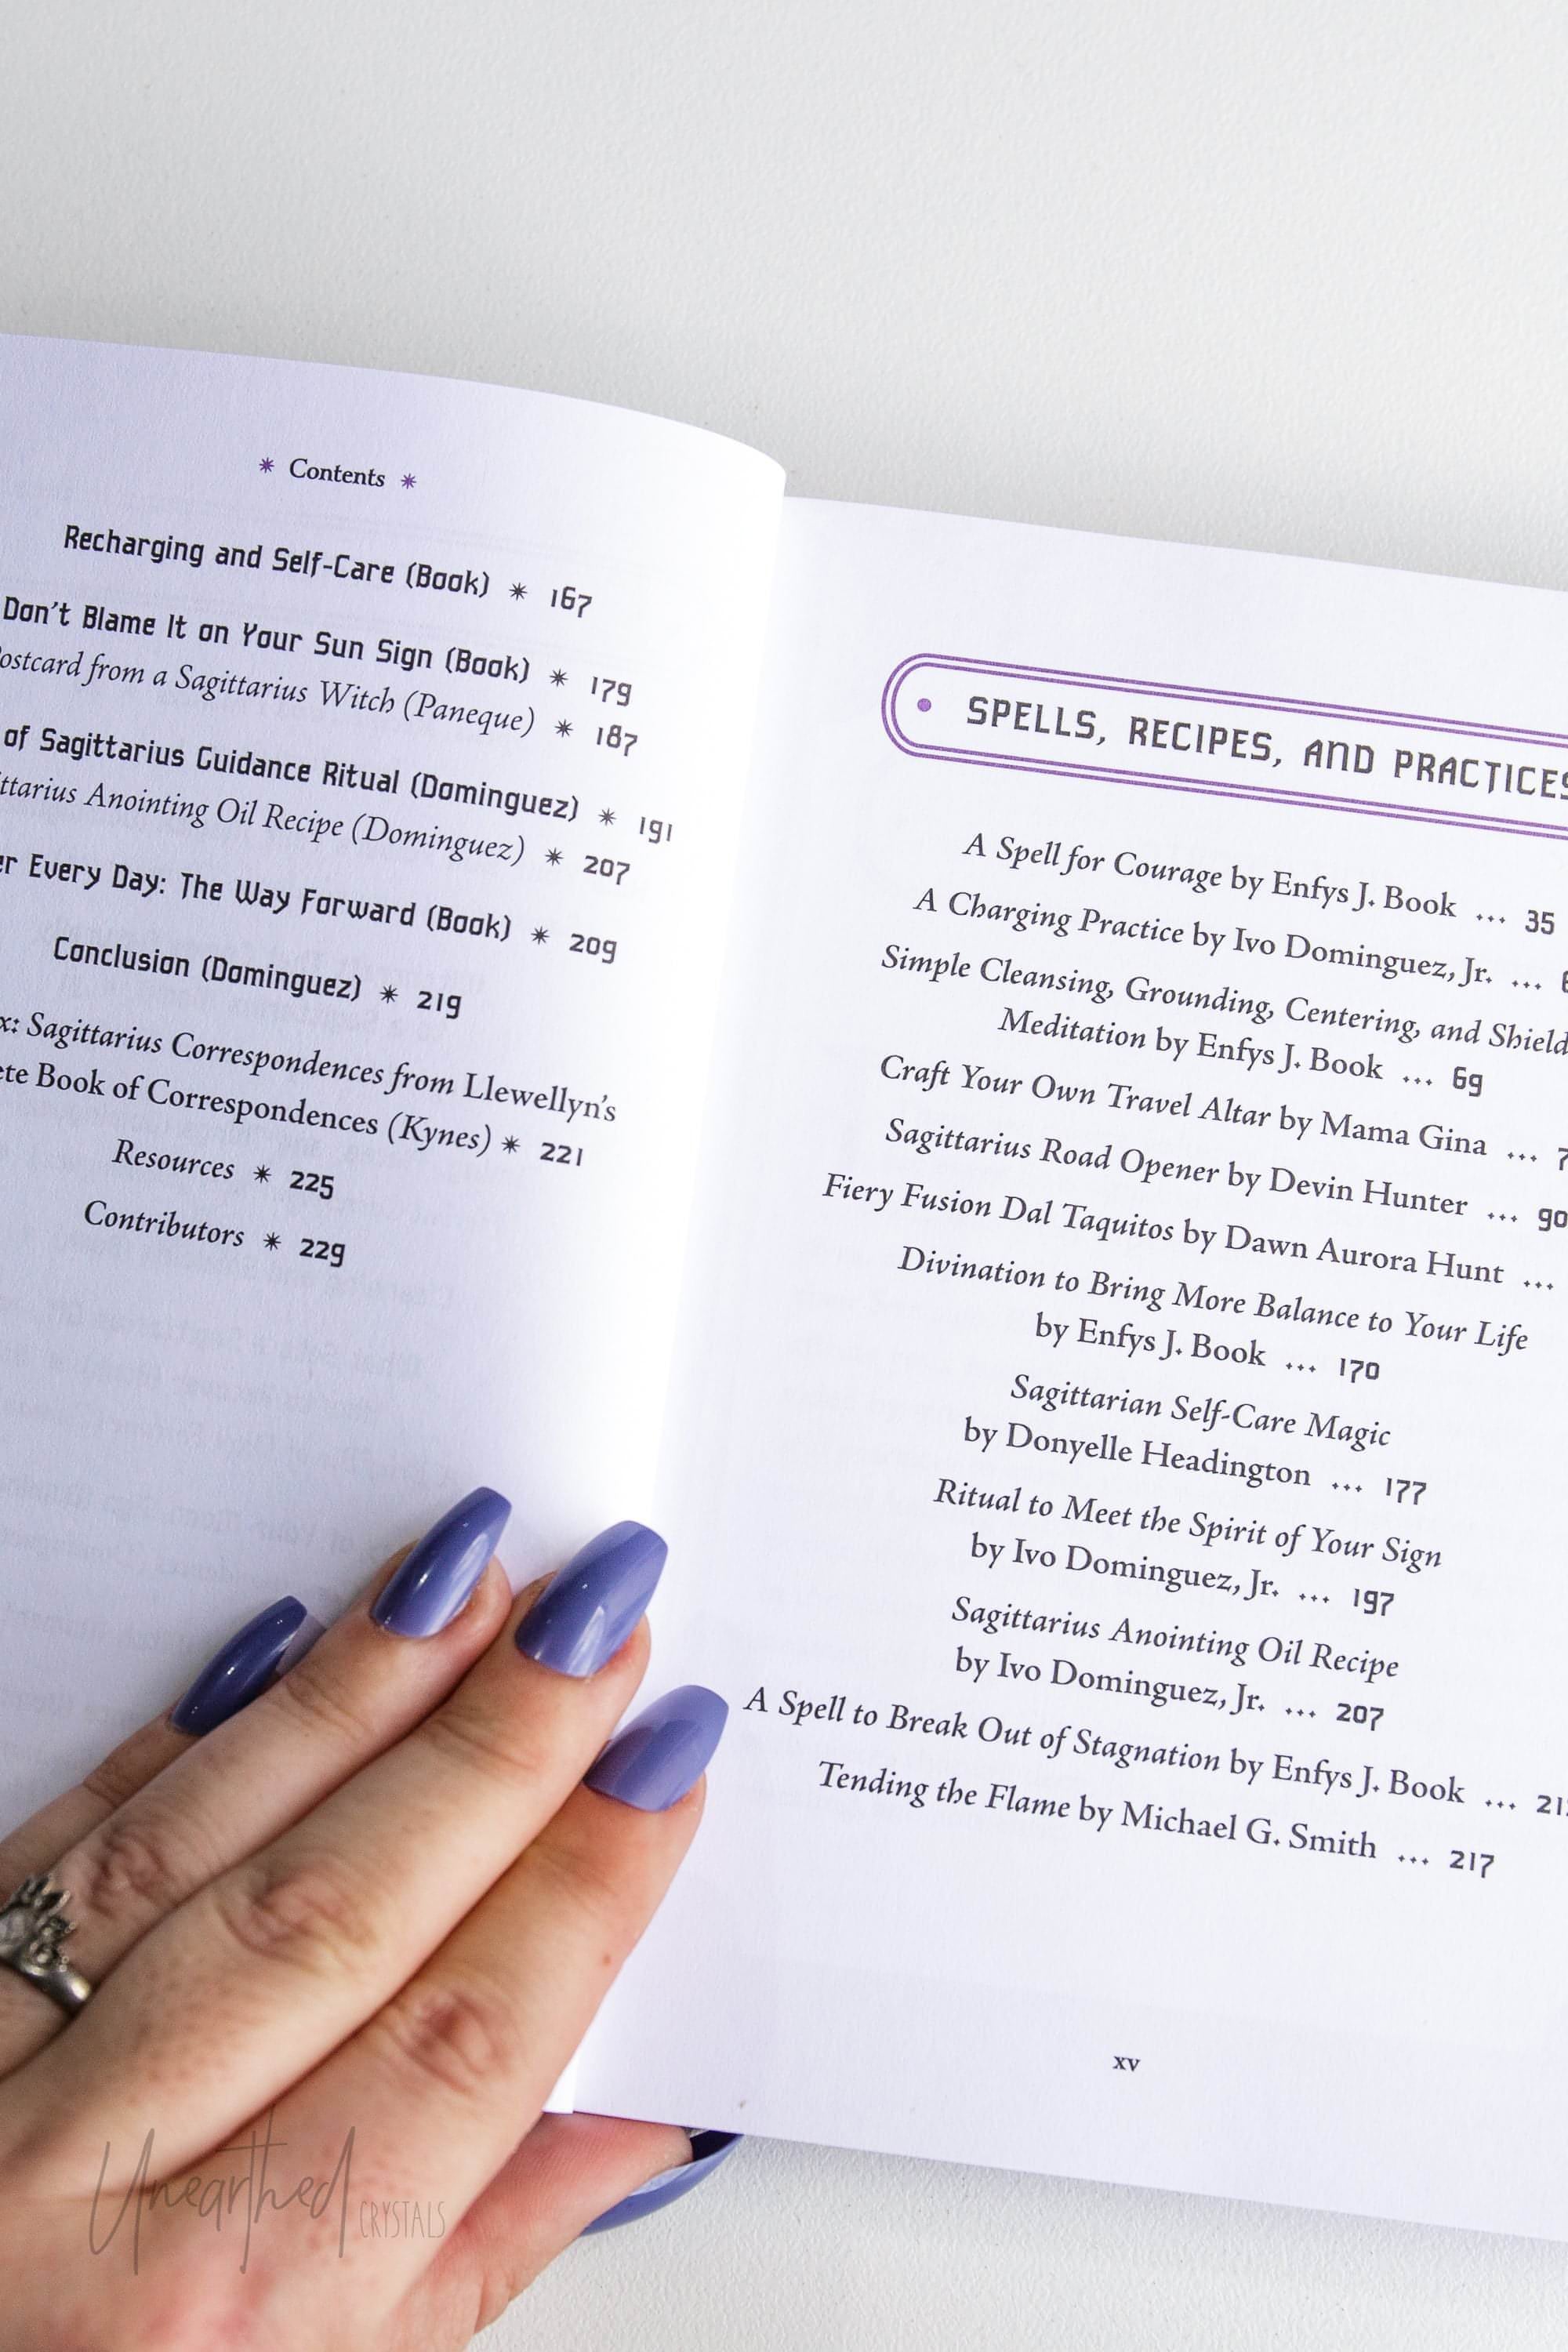 * Contents *
Recharging and Self-Care (Book) * 167
Don't Blame It on Your Sun Sign (Book) * 179
from a Sagittarius Witch (Paneque) * 187
of Sagittarius Guidance Ritual (Dominguez) * 191
Anointing Oil Recipe (Dominguez) * 207
Every Day: The Way Forward (Book) * 209
Conclusion (Dominguez) * 219
Sagittarius Correspondences from Llewellyn's
Book of Correspondences (Kynes) * 221
Resources * 225
Contributors * 229
SPELLS, RECIPES, AND PRACTICES
A Spell for Courage by Enfys J. Book ... 35
A Charging Practice by Ivo Dominguez, Jr. ...
Simple Cleansing, Grounding, Centering, and
Meditation by Enfys J. Book ... 69
Craft Your Own Travel Altar by Mama Gina ...
Sagittarius Road Opener by Devin Hunter ... 90
Fiery Fusion Dal Taquitos by Dawn Aurora Hunt ...
Divination to Bring More Balance to Your Life
by Enfys J. Book ... 170
Sagittarian Self-Care Magic
by Donyelle Headington ... 177
Ritual to Meet the Spirit of Your Sign
by Ivo Dominguez, Jr. ... 197
Sagittarius Anointing Oil Recipe
by Ivo Dominguez, Jr. ... 207
A Spell to Break Out of Stagnation by Enfys J. Book ...
Tending the Flame by Michael G. Smith ... 217
xv
Unearthed CRYSTALS